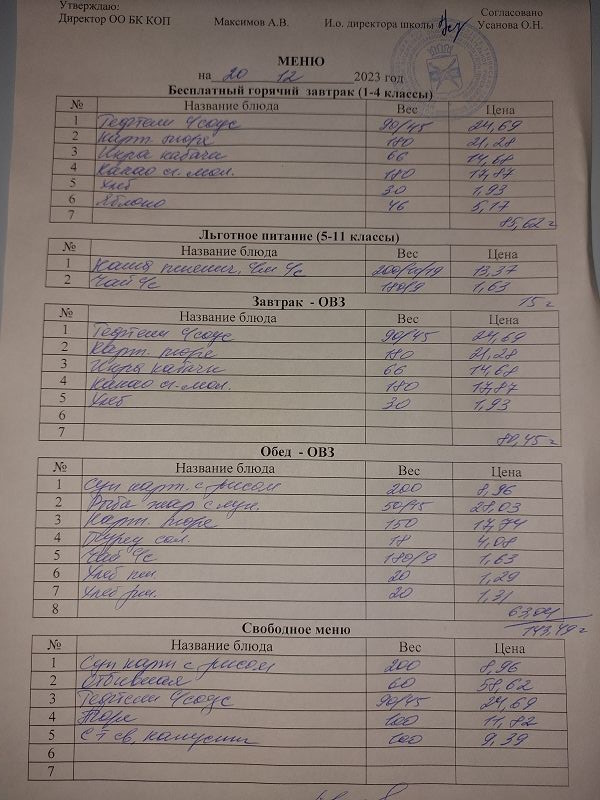 Утверждаю:
Согласовано
Директор ОО БК КОП Максимов А.В. И.о. директора школы Усанова О.Н.
МЕНЮ
на 20 12 2023 год
Бесплатный горячий завтрак (1-4 классы)
№ Название блюда Вес Цена
1 Тефтели с/соус 90/45 24,69
2 Карт. пюре 180 21,28
3 Икра кабачк 66 14,68
4 Какао сг. мол. 180 17,87
5 Хлеб 30 1,93
6 Яблоко 46 5,17
7 85,62
Льготное питание (5-11 классы)
№ Название блюда Вес Цена
1 Каша пшенич. с/м с/с 13,37
2 Чай с/с 180/9 1,63
15
Завтрак - ОВЗ
№ Название блюда Вес Цена
1 Тефтели с/соус 90/45 24,69
2 Карт. пюре 180 21,28
3 Икра кабачк 66 14,68
4 Какао сг. мол. 180 17,87
5 Хлеб 30 1,93
6
7 80,45
Обед - ОВЗ
№ Название блюда Вес Цена
1 Суп карт. с рисом 200 8,96
2 Рыба жар с лук. 50/45 28,03
3 Карт. пюре 150 17,74
4 Огурец сол. 18 4,08
5 Чай с/с 180/9 1,63
6 Хлеб пш. 20 1,29
7 Хлеб рж. 20 1,31
8 63,04
143,49
Свободное меню
№ Название блюда Вес Цена
1 Суп карт с рисом 200 8,96
2 Отбивная 60 58,62
3 Тефтели с/соус 90/45 24,69
4 Пюре 100 11,82
5 С-т св. капусты 100 9,39
6
7